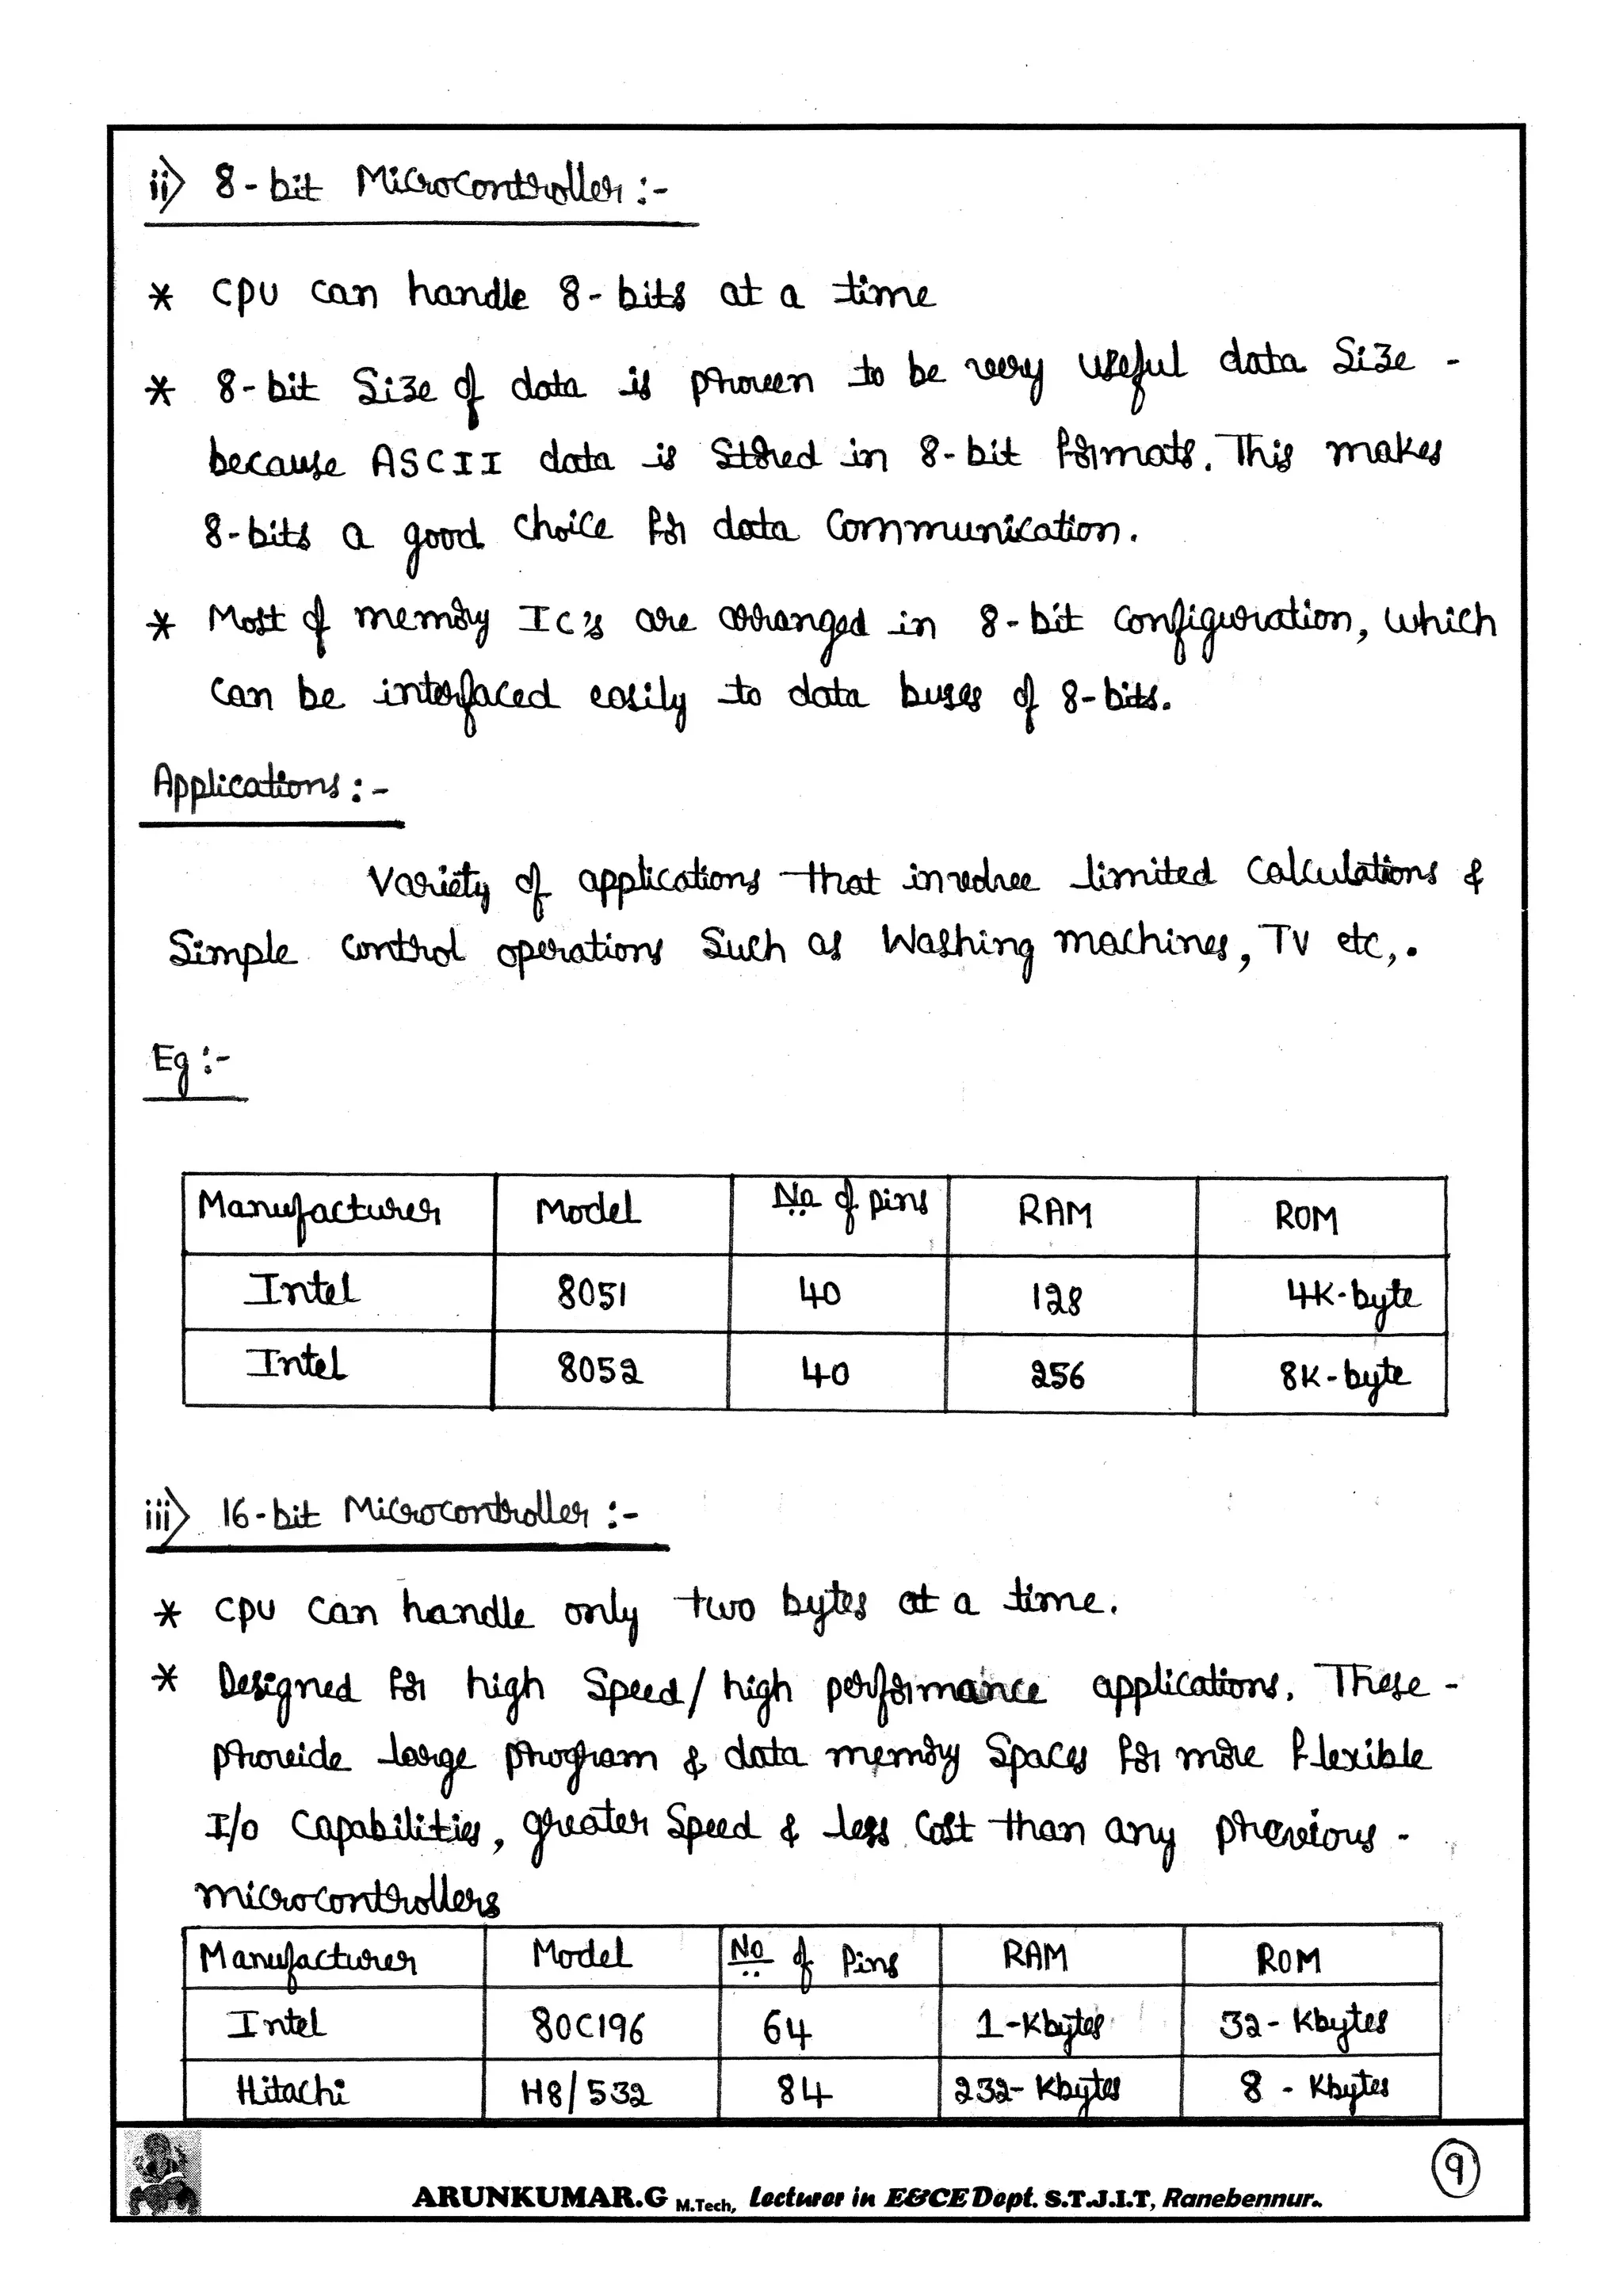 ii) 8-bit Microcontroller :-
* CPU can handle 8-bits at a time
* 8-bit Size of data is proven to be very useful data Size -
because ASCII data is Stored in 8-bit formats. This makes
8-bits a good choice for data communication.
* Most of memory IC's are arranged in 8-bit configuration, which
can be interfaced easily to data buses of 8-bits.
Applications :-
Variety of applications that involve limited calculations &
Simple control operations Such as Washing machines, TV etc,.
Eg :-
Manufacturer Model No of pins RAM ROM
Intel 8051 40 128 4K-byte
Intel 8052 40 256 8K-byte
iii) 16-bit Microcontroller :-
* CPU can handle only two bytes at a time.
* Designed for high Speed/high performance applications. These -
provide large program & data memory Spaces for more flexible
I/O Capabilities, greater Speed & less Cost than any previous -
microcontrollers
Manufacturer Model No of Pins RAM ROM
Intel 80C196 64 1-Kbytes 32-Kbytes
Hitachi H8/532 84 232-Kbytes 8-Kbytes
9
ARUNKUMAR.G M.Tech, Lecturer in E&CE Dept. S.T.J.I.T, Ranebennur..